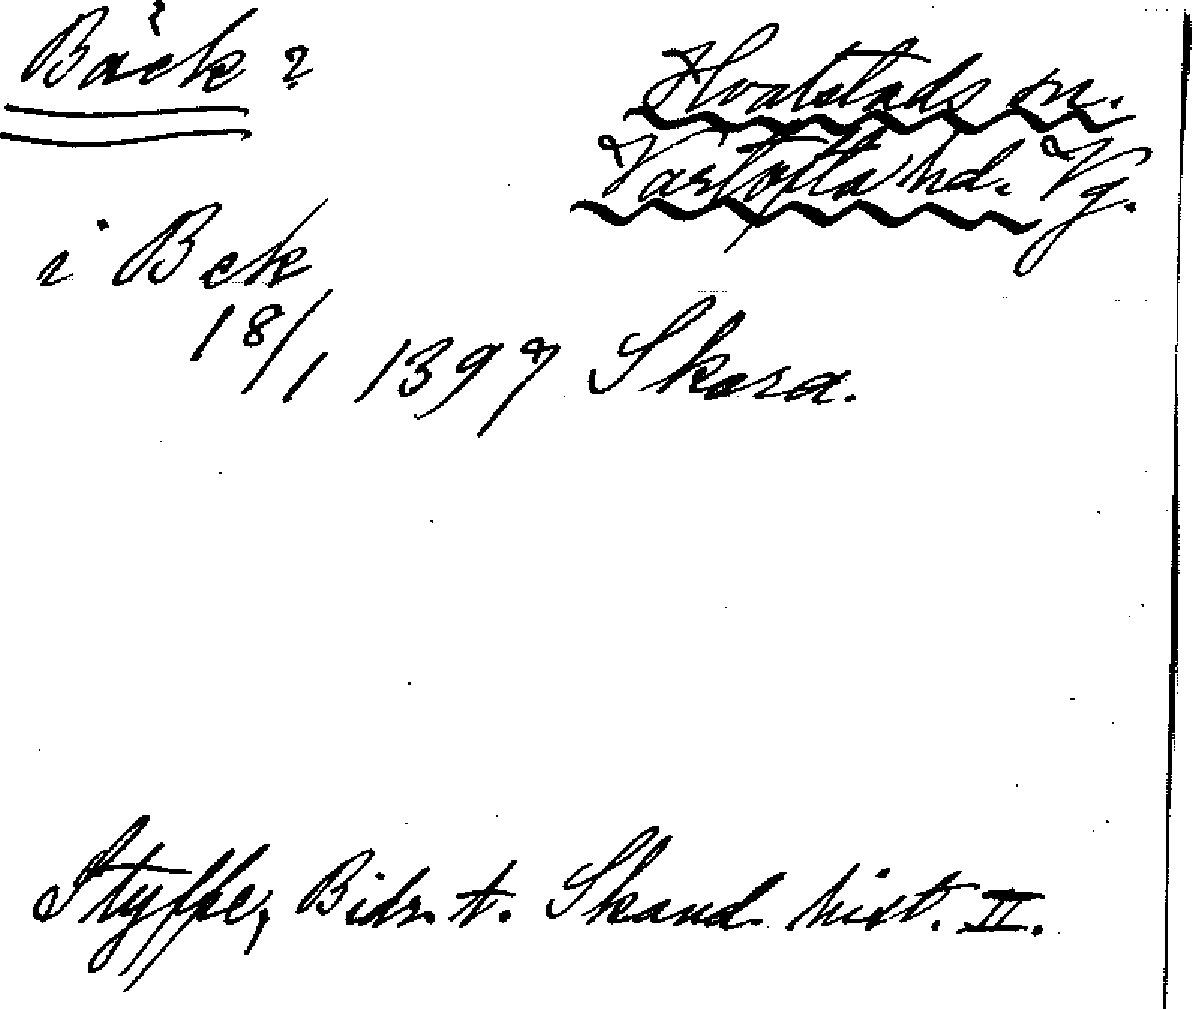 Bäck?
Hvalstads sn.
Vartofta hd. Vg.
i Bek
18/1 1397 Skara.
Styffe, Bidr. t. Skand. hist. II.